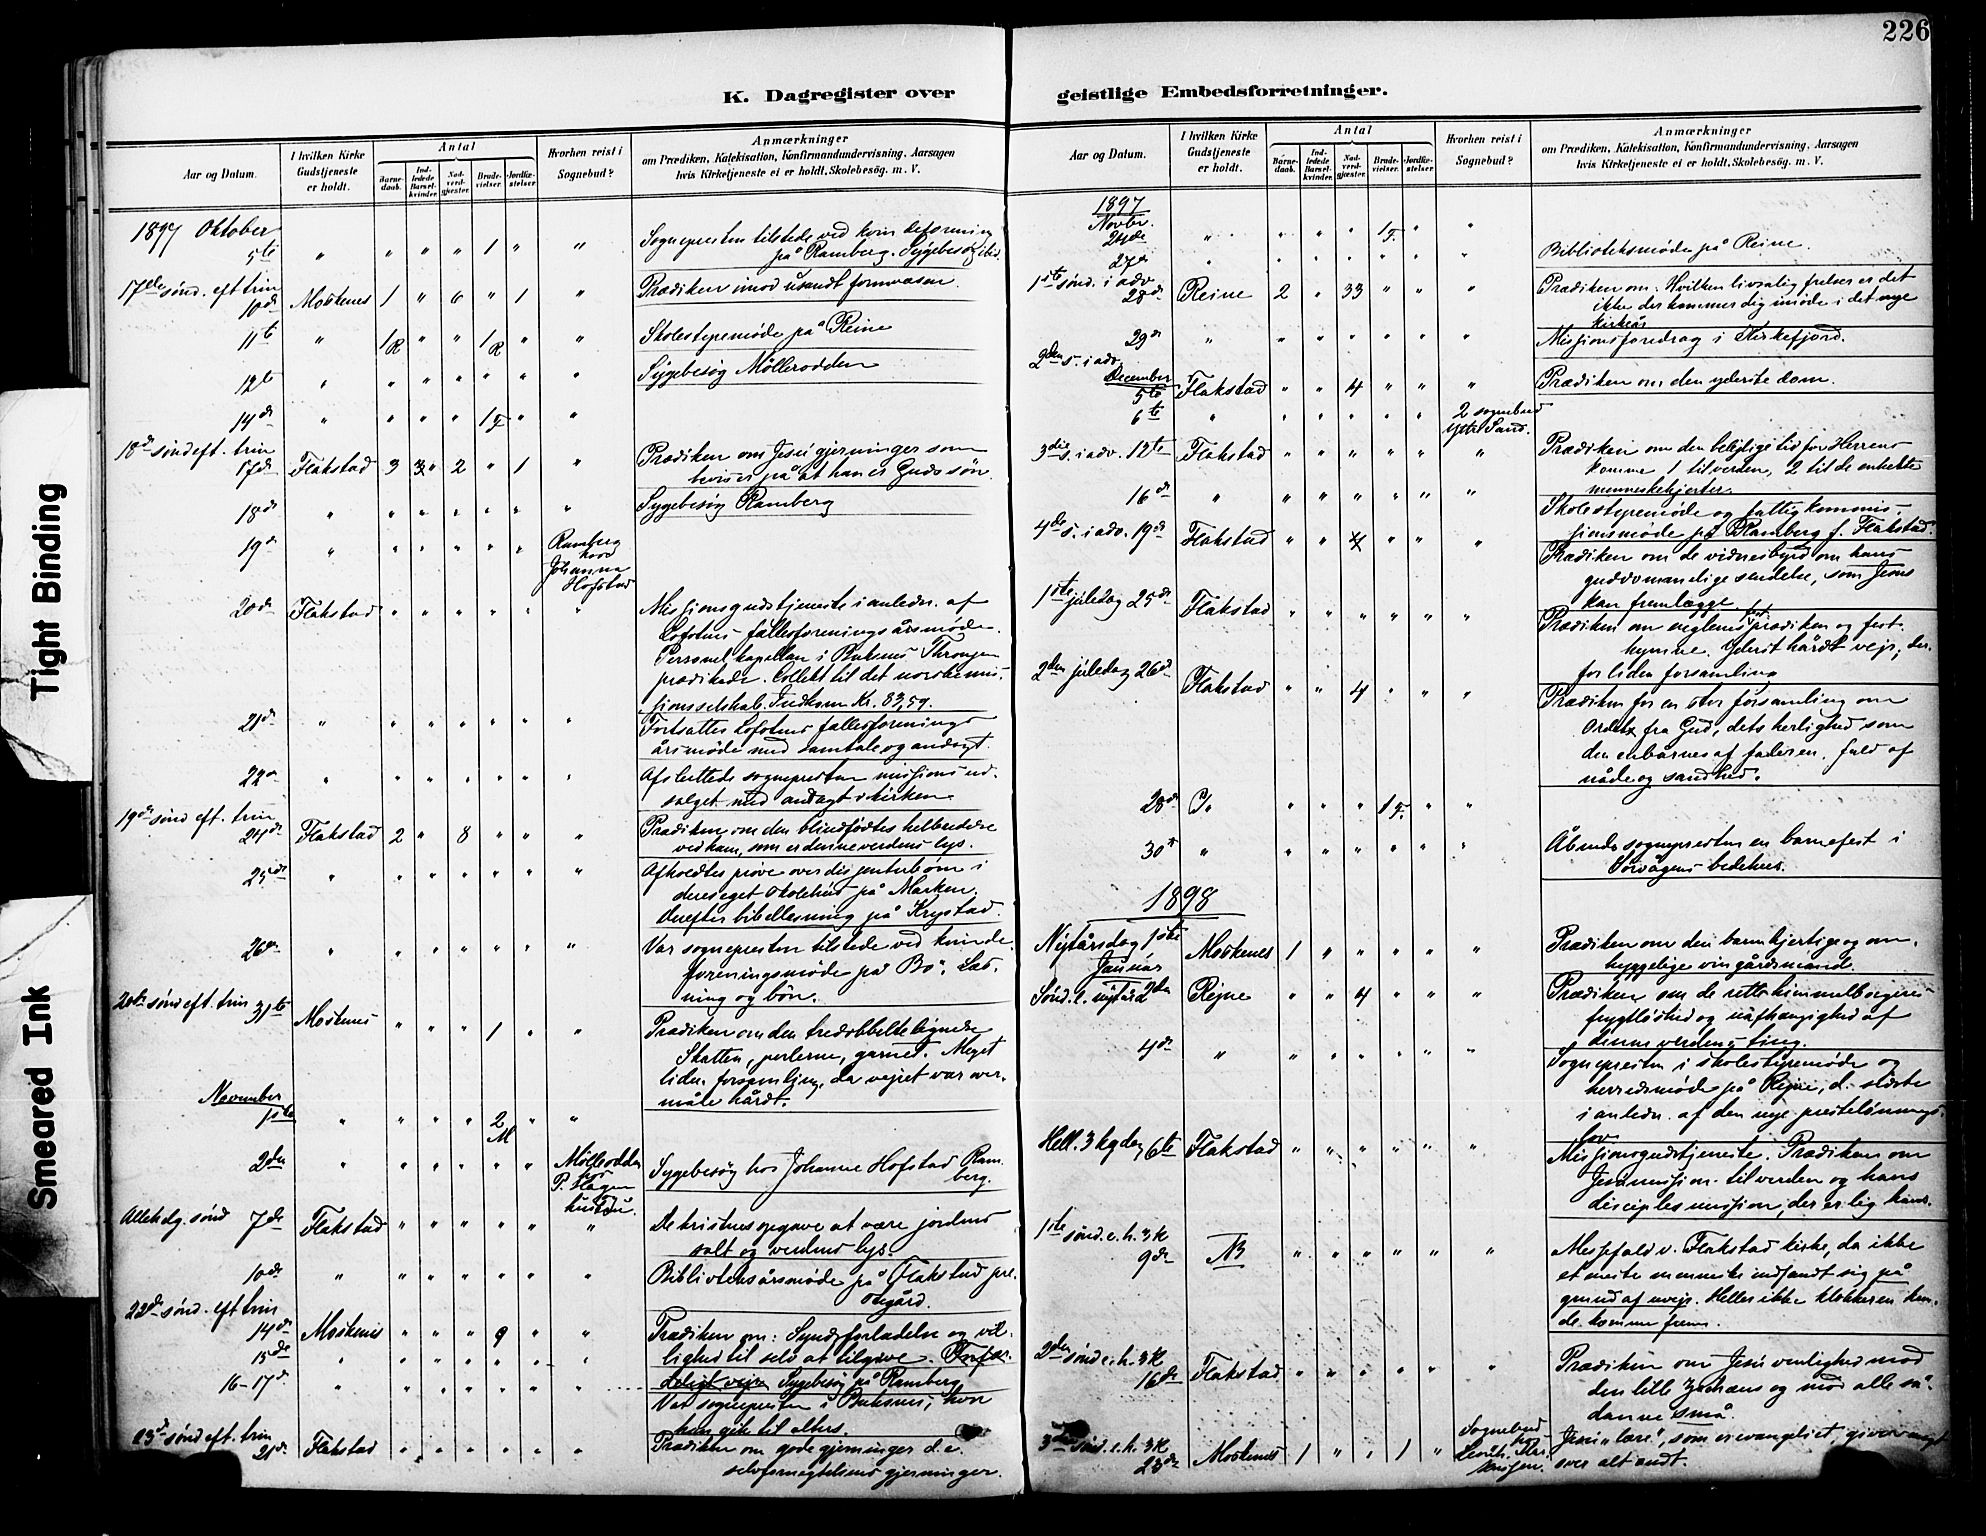 226
K. Dagregister over geistlige Embedsforretninger.
Tight Binding
Smeared Ink
Aar og Datum.
I hvilken Kirke Gudstjeneste er holdt.
Antal
Barnedaab.
Indledede Barselkvinder.
Nadverdgjæster.
Brudevielser.
Jordfæstelser.
Hvorhen reist i Sognebud?
Anmærkninger
om Prædiken, Katekisation, Konfirmandundervisning, Aarsagen
hvis Kirketjeneste ei er holdt, Skolebesøg. m. V.
1897 Oktober
5te " " " " 1 " " Sognepresten tilstede ved kvindeforening
på Ramberg. Sygebesøg ibid.
17de sønd. eft trin
10de Moskenes 1 " 6 " 1 " Prædiken imod usandt formvæsen.
11te " 1R " " 1R " " Skolestyremøde på Reine
12te " " " " " " " Sygebesøg Møllerodden
14de " " " " 1F " "
18de sønd eft. trin
17de Flakstad 3 3 " 2 " 1 " Prædiken om Jesu gjerninger som
bevis på at han er Guds søn.
18de " " " " " " " Sygebesøg Ramberg
19de " " " " " " Ramberg
hos
Johanna
Hofstad
20de Flakstad " " " " " " Missionsgudstjeneste i anledn. af
Lofotens fællesforenings årsmøde.
Personel kapellan i Buksnes
prædikede. Collekt til det norske mis-
sionsselskab. Indkom Kr. 83,59.
21de " " " " " " " Fortsattes Lofotens fællesforenings
årsmøde med samtale og andagt.
22de " " " " " " " Afsluttede sognepresten missionsud-
salget med andagt i kirken
19de sønd eft. trin
24de Flakstad 2 " 8 " " " Prædiken om den blindfødtes helbredelse
ved ham, som er denne verdens lys.
25de " " " " " " " Afholdtes prøve over
deres eget skolehus på Marken.
Derefter bibellæsning på Krystad.
26de " " " " " " " Var sognepresten tilstede ved kvinde-
foreningsmøde på Bø. Læs-
ning og bøn.
20de sønd eft. trin 31te
Moskenes " " " 1 " " Prædiken om den tredobbelte lignelse
Skatten, perlerne, garnet. Meget
liden forsamling, da vejret var over-
måte hårdt.
November
1ste " " " " 2M " "
2den " " " " " " Møllerodden
hos
P. Hagen
hustru. Sygebesøg hos Johanne Hofstad Ram-
berg.
Alleh.dg. sønd 7de Flakstad " " " " " " De kristnes opgave at være jordens
salt og verdens lys.
10de " " " " " " " Biblioteksårsmøde på Flakstad pre-
stegård.
22de sønd. eft trin
14de Moskenes " " " 9 " " Prædiken om: Syndsforladelse og vil-
lighed til selv at tilgive.
15de " " " " " " " Sygebesøg på Ramberg
16-17de " " " " " " " Var sognepresten i Buksnes, hvor
han gik til alters.
23de sønd eft. trin
21de Flakstad " " " " " " Prædiken om gode gjerninger d.e.
selvfornægtelsens gjerninger.
Aar og Datum.
I hvilken Kirke Gudstjeneste er holdt.
Antal
Barnedaab.
Indledede Barselkvinder.
Nadverdgjæster.
Brudevielser.
Jordfæstelser.
Hvorhen reist i Sognebud?
Anmærkninger
om Prædiken, Katekisation, Konfirmandundervisning, Aarsagen
hvis Kirketjeneste ei er holdt, Skolebesøg. m. V.
1897
Novbr.
24de " " " " 1F. " "
27de " " " " " " " Biblioteksmøde på Reine.
1ste sønd. i adv.
28de Reine 2 " 33 " " " Prædiken om: Hvilken livsalig frelser er det
ikke der kommer dig imøde i det nye
kirkeår
29de " " " " " " " Missionsforedrag i Kirkefjord.
2den s. i adv.
December
5te Flakstad " " 4 " " " Prædiken om den yderste dom.
6te " " " " " " 2 sognebud
Ytre Sand.
3die s. i adv. 12te Flakstad " " " " " " Prædiken om den belejlige tid for Herrens
komme 1 til verden, 2 til de enkelte
menneskehjerter.
16de " " " " " " " Skolestyremøde og fattigkommis-
sionsmøde på Ramberg f. Flakstad.
4de s. i adv. 19de Flakstad " " 4 " " " Prædiken om de vidnesbyrd om hans
guddommelige sendelse, som Jesus
kan fremlægge.
1ste juledag 25de Flakstad " " " " " " Prædiken om englenes prædiken og fest-
hymne. Yderst hårdt vejr, der-
for liden forsamling
2den juledag 26de Flakstad " " 4 " " " Prædiken for en stor forsamling om
Ordet fra Gud, dets herlighed som
den enbårnes af faderen, fuld af
nåde og sandhed.
28de " " " " 1F. " "
30te " " " " " " " sognepresten en barnefest i
Sørvågens bedehus.
1898
Nytårsdag 1ste
Januar Moskenes 1 " " " " " Prædiken om den barmhjertige og om-
hyggelige vingårdsmand.
Sønd. e. nytår 2den Rejne " " 4 " " " Prædiken om de rette himmelborgeres
frygtløshed og uafhængighed af
denne verdens ting.
4de " " " " " " " Sognepresten i skolestyremøde og
herredsmøde på Rejne, d. sidste
i anledn. af den nye prestelønnings-
lov.
Hell. 3 kg dag 6te Flakstad " " " " " " Missionsgudstjeneste. Prædiken om
Jesu mission til verden og hans
disciples mission, der er lig hans.
1ste sønd. e. h. 3 k
9de NB " " " " " " Messefald v. Flakstad kirke, da ikke
et eneste menneske indfandt sig på
grund af uvejr. Heller ikke klokkeren kun-
de komme frem.
2den sønd e. h. 3k
16de Flakstad " " " " " " Prædiken om Jesu venlighed mod
den lille Zakæus og mod alle så-
danne små.
3die sønd. e. h. 3k
23de Moskenes 1 " " 1 " Sognebud
hos
Jesu "lære", som er evangeliet, giver
over alt andt.